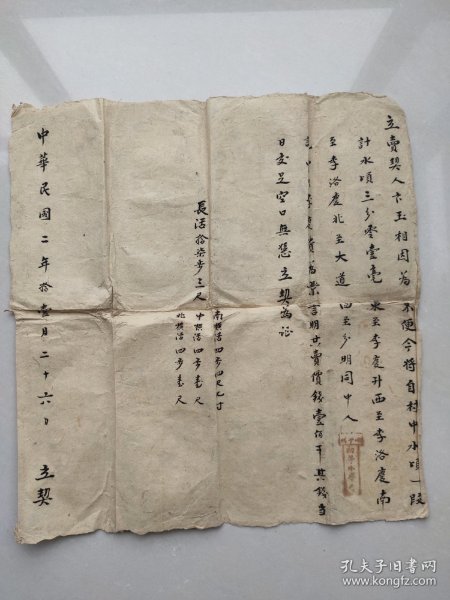 立賣契人卞玉相因為不便今將自村中水塤一段
計水塤三分零壹毫 東至李慶玶西至李洛慶南
至李洛慶北至大道 四至分明同中人
為業言明共賣價錢壹佰千其錢當
日交足空口無憑立契為証
長活拾柒步三尺
南橫活四步四尺九寸
中橫活四步壹尺
北橫活四步壹尺
中華民國二年拾壹月二十六日 立契
孔夫子旧书网
www.kongfz.com